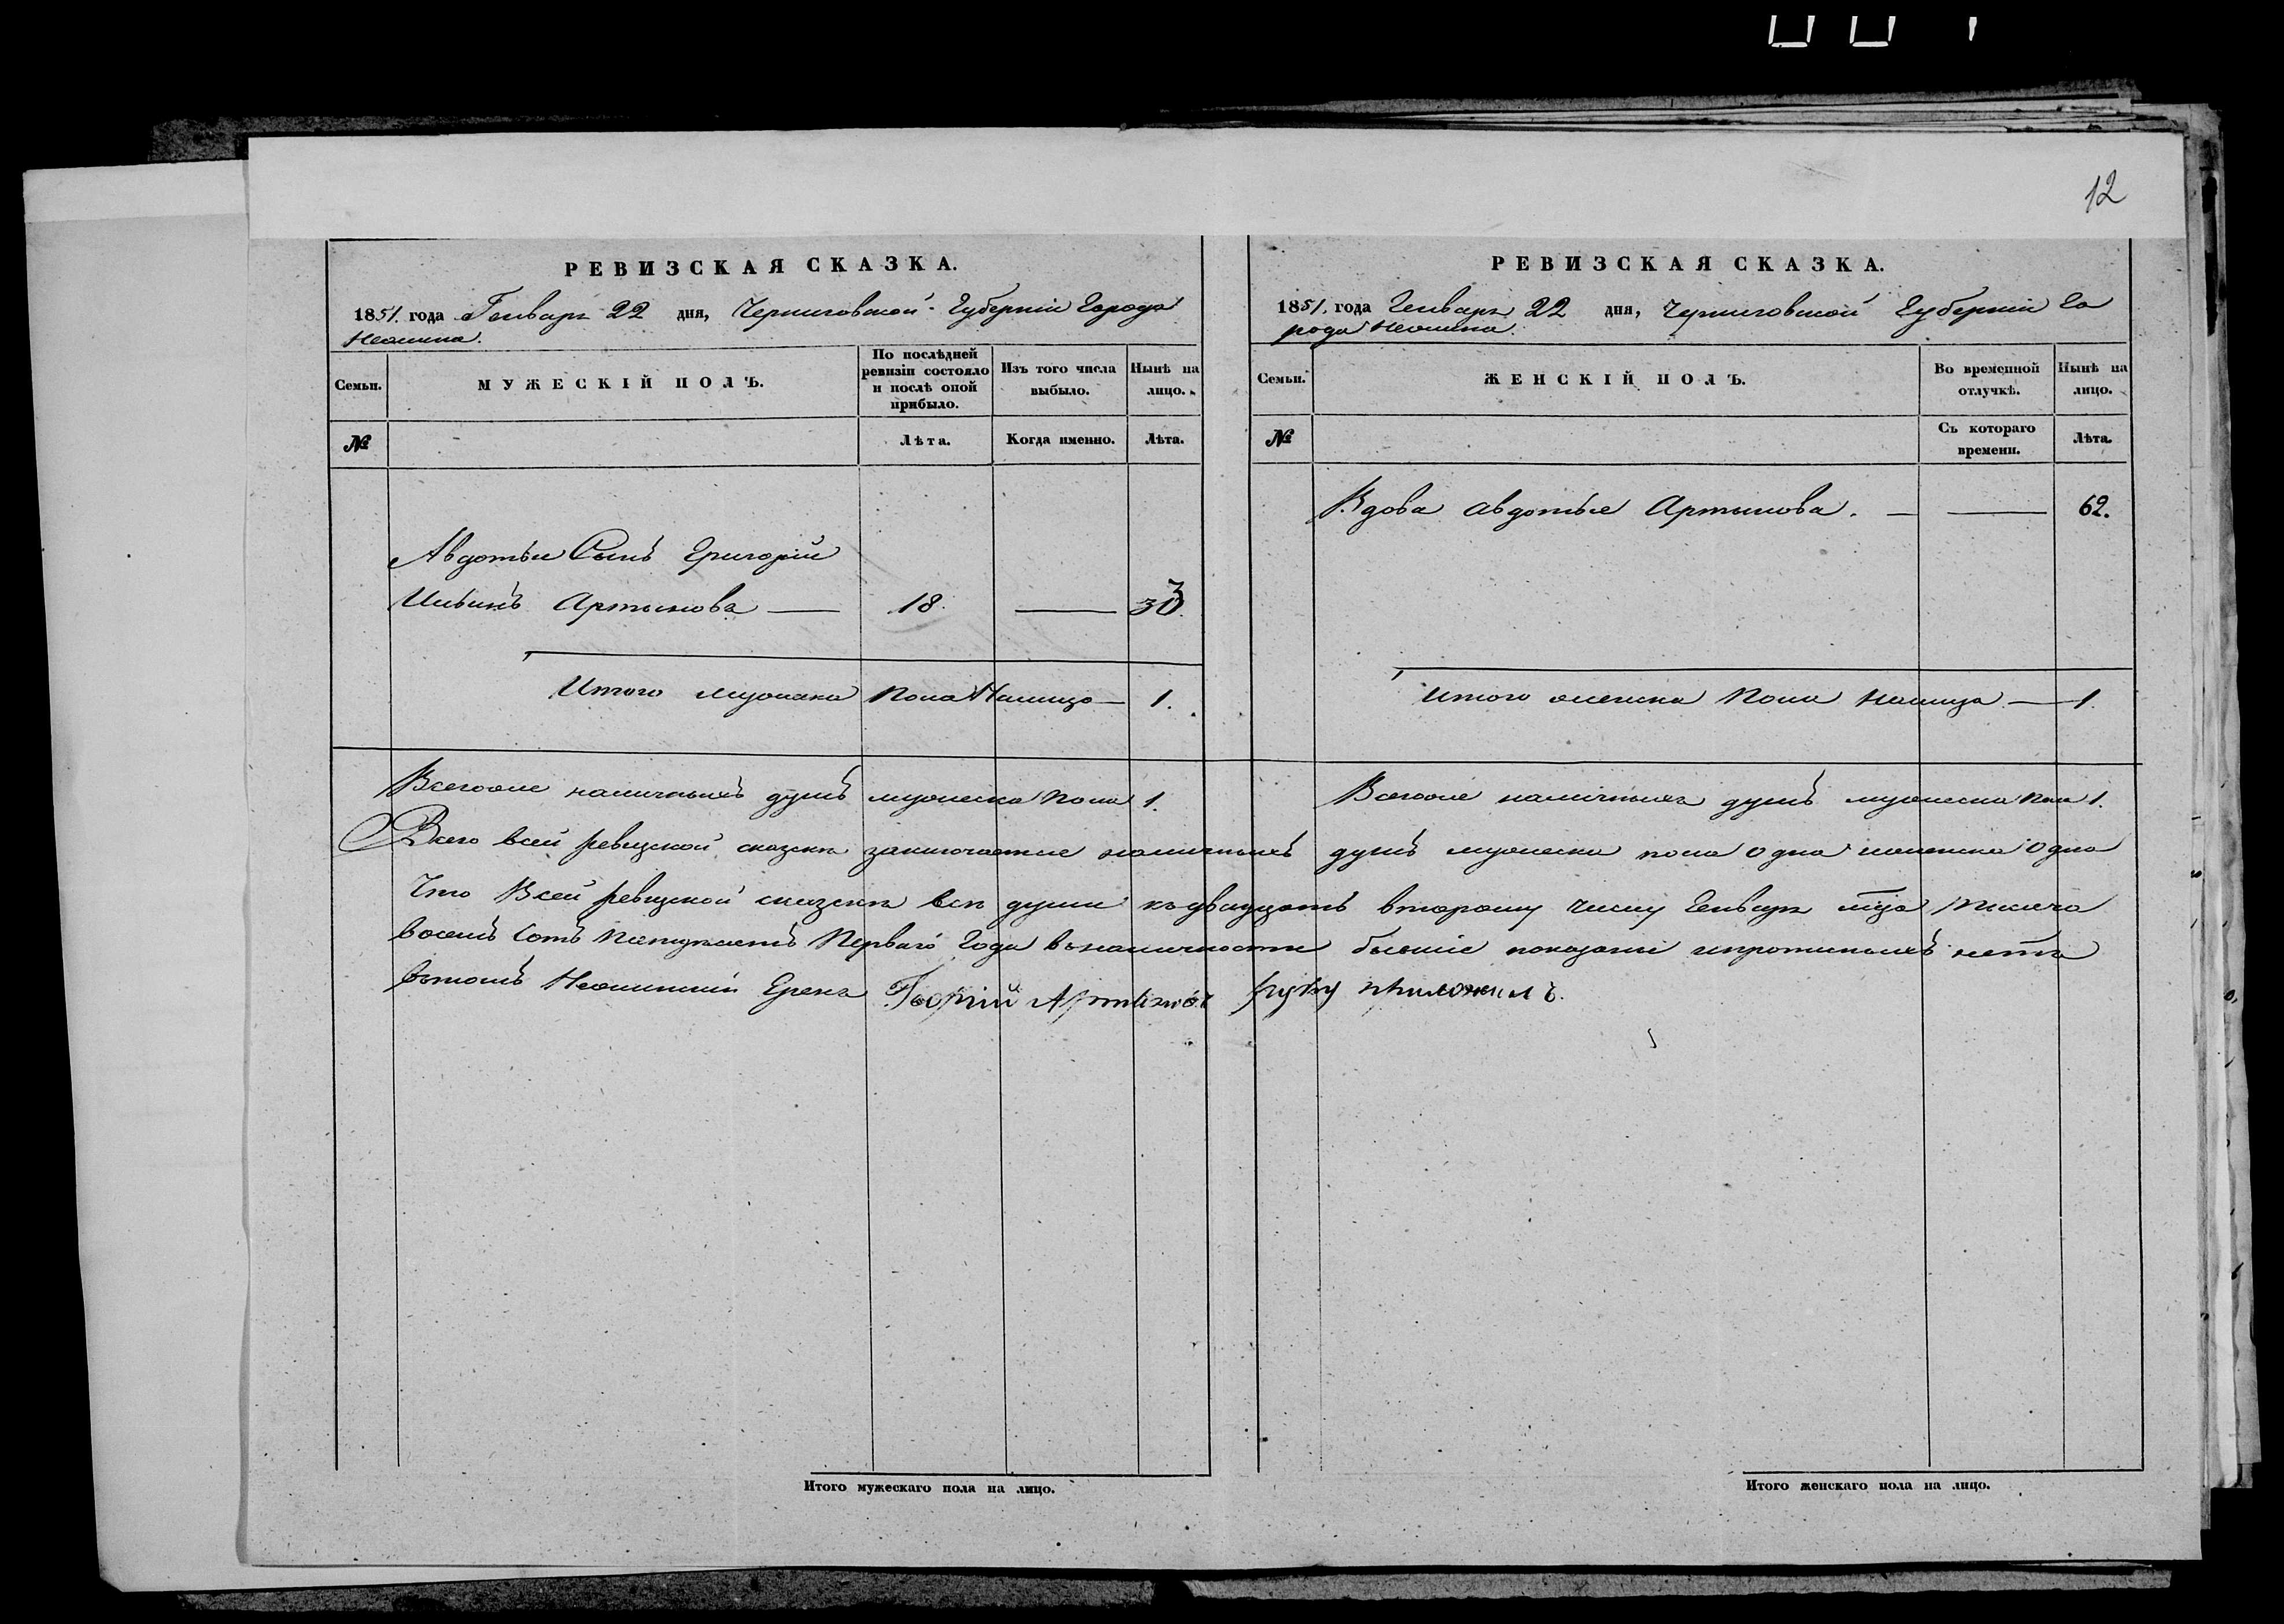 12
РЕВИЗСКАЯ СКАЗКА.
1851. года Генваря 22 дня, Черниговской Губерніи Города
Нежина.
Семьи.
МУЖЕСКІЙ ПОЛЪ.
По послѣдней
ревизіи состояло
и послѣ оной
прибыло.
Изъ того числа
выбыло.
Нынѣ на
лицо.
№
Лѣта.
Когда именно.
Лѣта.
Авдотьи Сынъ Григорій
Ильинъ Артынова — 18. —
Итого мужеска Пола Налицо — 1.
Всегоже наличныхъ душъ мужеска Пола 1.
РЕВИЗСКАЯ СКАЗКА.
1851. года Генваря 22 дня, Черниговской Губерніи Го
рода Нежина.
Семьи.
ЖЕНСКІЙ ПОЛЪ.
Во временной
отлучкѣ.
Нынѣ на
лицо.
№
Съ котораго
времени.
Лѣта.
Вдова Авдотья Артынова. — — 62.
Итого женска Пола Налицо — 1.
Всегоже наличныхъ душъ мужеска Пола 1.
Всего всей ревизской сказки заключаетсе наличныхъ душъ мужеска пола одна иженска одна
Что Всей ревизской сказки все души къдвадцать второму числу Генваря мца тисяча
восемъ Сотъ Пятдесятъ Перваго Года вьналичности бывшіе показані ипротиныхъ нетъ
вьтомъ Нежинскій Грекъ Георгій Артинов руку приложилъ.
Итого мужескаго пола на лицо.
Итого женскаго пола на лицо.